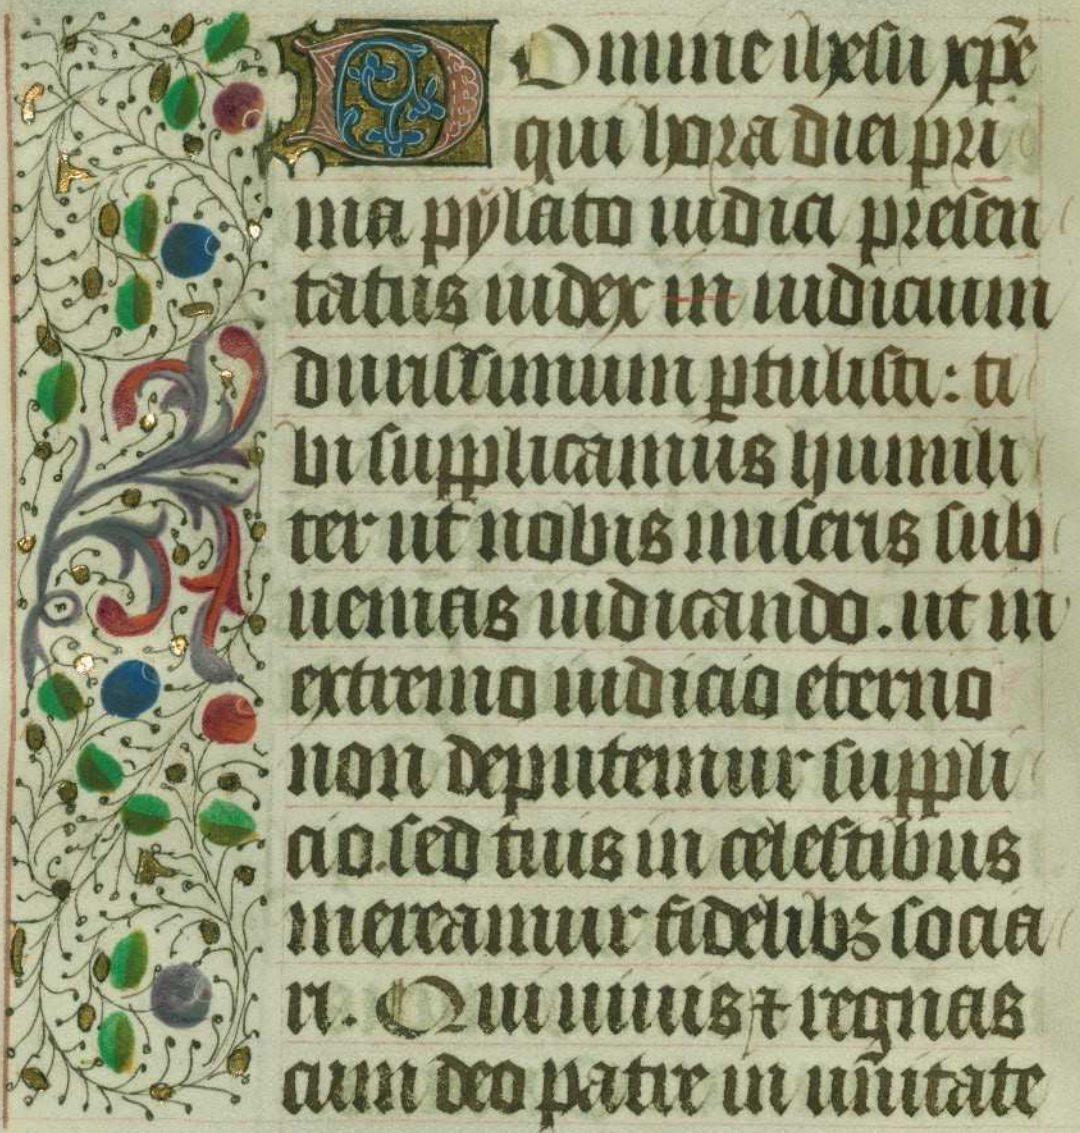 Domine ihesu xp̄e
qui hora diei pri
ma pylato iudici presen
tatus iudex in iudicium
durissimum ꝑtulisti: ti
bi supplicamus humili
ter ut nobis miseris sub
uenias iudicando. ut in
extremo iudicio eterno
non deputemur suppli
cio. sed tuis in celestibus
mereamur fidelibꝫ socia
ri. Qui uiuis ⁊ regnas
cum deo patre in unitate